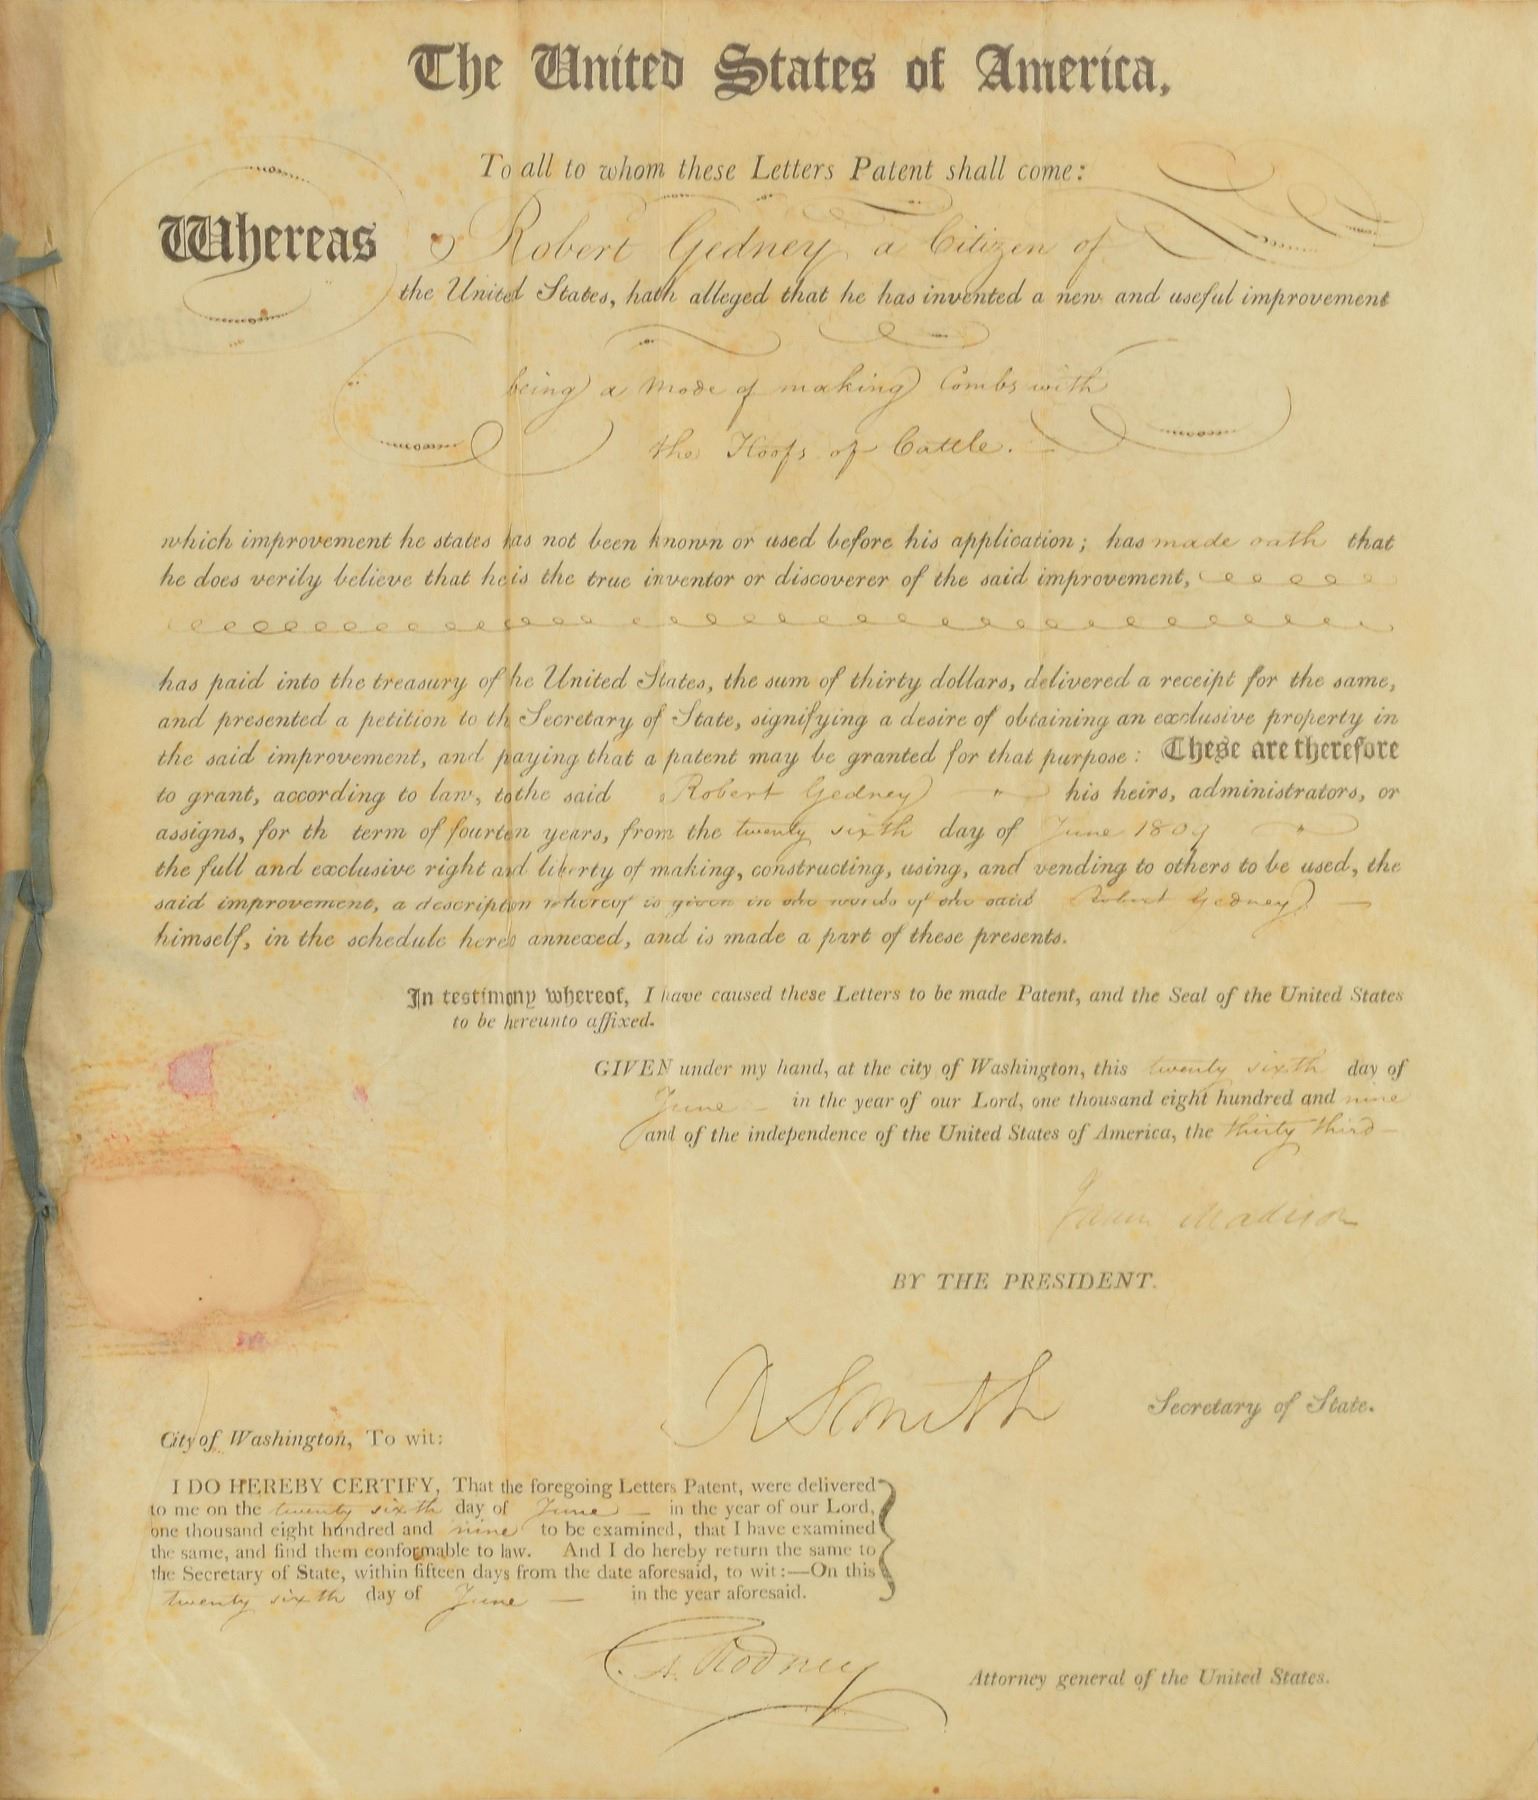 The United States of America,
To all to whom these Letters Patent shall come:
Whereas Robert Gedney a Citizen of
the United States, hath alleged that he has invented a new and useful improvement
being a mode of making Combs with
the Hoofs of Cattle.
which improvement he states has not been known or used before his application; has made oath that
he does verily believe that he is the true inventor or discoverer of the said improvement,
has paid into the treasury of he United States, the sum of thirty dollars, delivered a receipt for the same,
and presented a petition to th Secretary of State, signifying a desire of obtaining an exclusive property in
the said improvement, and paying that a patent may be granted for that purpose: These are therefore
to grant, according to law, to the said Robert Gedney " his heirs, administrators, or
assigns, for th term of fourten years, from the twenty sixth day of June 1809 "
the full and exclusive right and liberty of making, constructing, using, and vending to others to be used, the
said improvement, a descripton whereof is given in the words of the said Robert Gedney —
himself, in the schedule here annexed, and is made a part of these presents.
In testimony whereof, I have caused these Letters to be made Patent, and the Seal of the United States
to be hereunto affixed.
GIVEN under my hand, at the city of Washington, this twenty sixth day of
June — in the year of our Lord, one thousand eight hundred and nine
and of the independence of the United States of America, the thirty third —
James Madison
BY THE PRESIDENT.
R Smith Secretary of State.
City of Washington, To wit:
I DO HEREBY CERTIFY, That the foregoing Letters Patent, were delivered
to me on the twenty sixth day of June — in the year of our Lord,
one thousand eight hundred and nine to be examined, that I have examined
the same, and find them conformable to law. And I do hereby return the same to
the Secretary of State, within fifteen days from the date aforesaid, to wit:—On this
twenty sixth day of June — in the year aforesaid.
C. A. Rodney Attorney general of the United States.